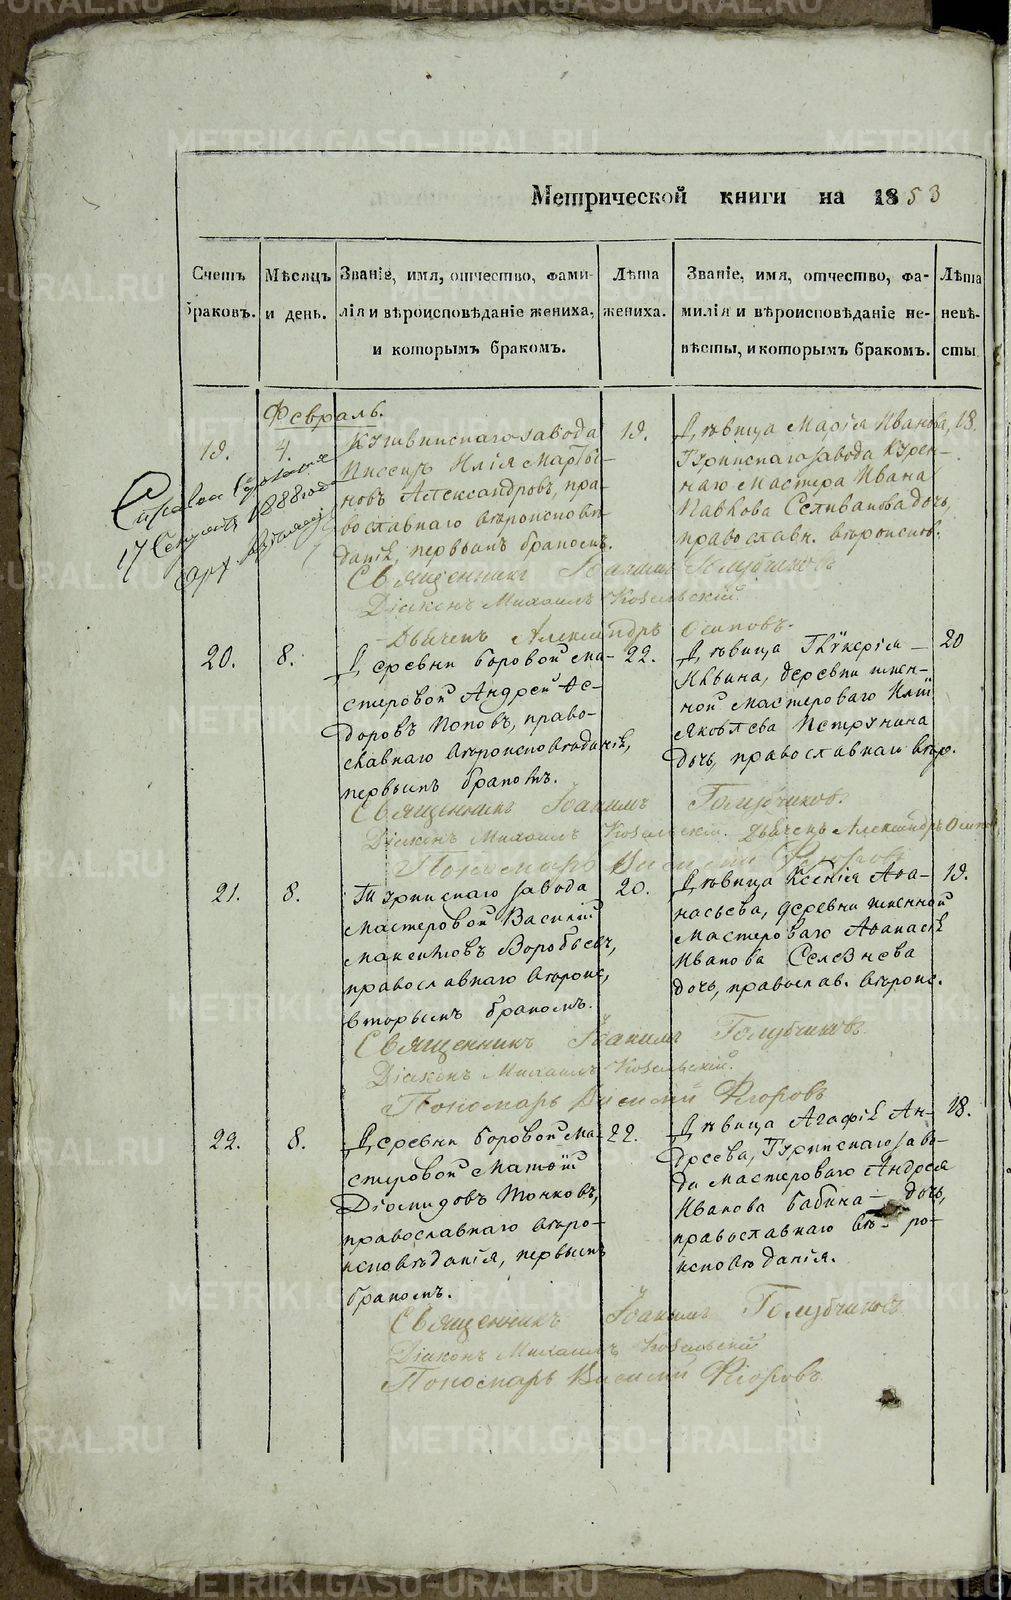 Метрической книги на 1853
Счетъ браковъ.
Мѣсяцъ и день.
Званіе, имя, отчество, фами-
лія и вѣроисповѣданіе жениха,
и которымъ бракомъ.
Лѣта жениха.
Званіе, имя, отчество, фа-
милія и вѣроисповѣданіе не-
вѣсты, и которымъ бракомъ.
Лѣта невѣ-
сты
Февраль.
19.
4.
завода
Илія Марты-
новъ Александровъ, пра-
вославнаго вѣроисповѣ-
данія, первымъ бракомъ.
19.
Дѣвица Марія Иванова,
завода Курен-
наго мастера Ивана
Павлова Селиванова дочь,
православн. вѣроиспов.
18.
17 1888
Священникъ Іоакимъ Голубчиковъ
Діаконъ Михаилъ Козельскій
Дьячекъ Александръ Осиповъ.
20.
8.
Деревни Боровой ма-
стеровой Андрей Ѳе-
доровъ Поповъ, право-
славнаго вѣроисповѣданія,
первымъ бракомъ.
22.
Дѣвица Гликерія
Ильина, деревни
ной мастероваго Иліи
Яковлева Петрунина
дочь, православнаго вѣр.
20
Священникъ Іоакимъ Голубчиковъ.
Діаконъ Михаилъ Козельскій. Дьячекъ Александръ Осипов
Пономарь Василій
21.
8.
завода
мастеровой Василій
Максимовъ Воробьевъ,
православнаго вѣроис,
вторымъ бракомъ.
20.
Дѣвица Ксенія Аѳа-
насьева, деревни
мастероваго Аѳанасія
Иванова Селезнева
дочь, православ. вѣроис.
19.
Священникъ Іоакимъ Голубчиковъ
Діаконъ Михаилъ Козельскій.
Пономарь Василій Флоровъ
22.
8.
Деревни Боровой ма-
стеровой Матѳій
Діомидовъ Тонковъ,
православнаго вѣро-
исповѣданія, первымъ
бракомъ.
22.
Дѣвица Агафія Ан-
дреева, заво-
да мастероваго Андрея
Иванова Бабина дочь,
православнаго вѣ- ро-
исповѣданія.
18.
Священникъ Іоакимъ Голубчиковъ
Діаконъ Михаилъ Козельскій
Пономарь Василій Флоровъ
METRIKI.GASO-URAL.RU